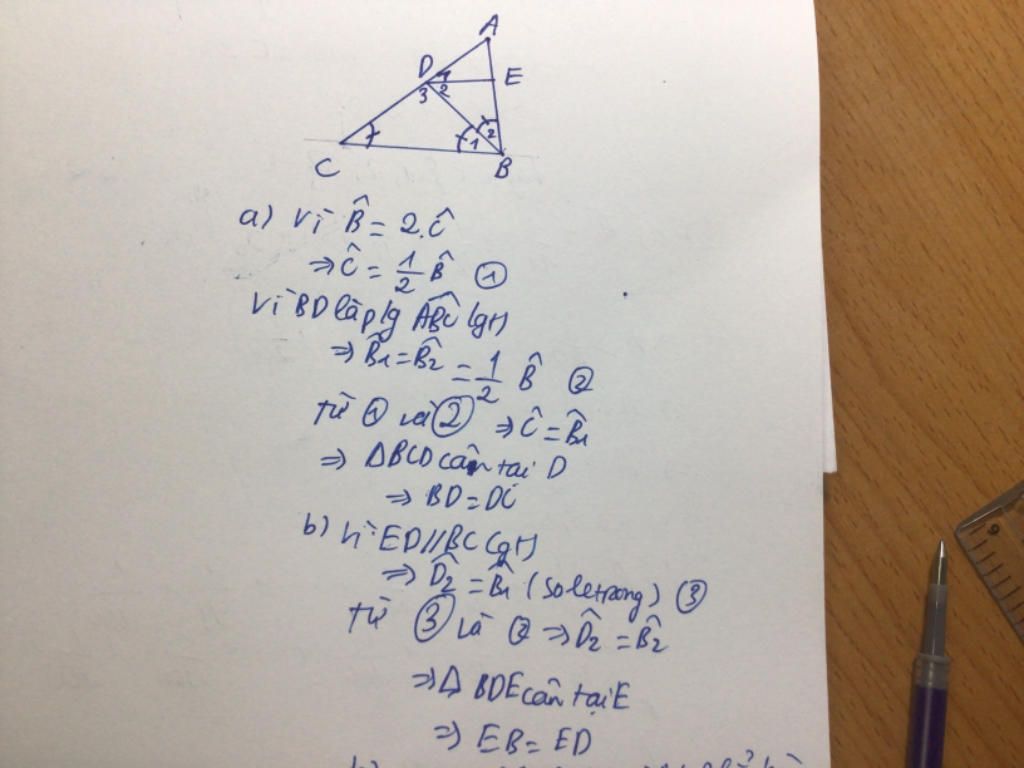 A
D 1
2
3
E
C
1
2
B
a) Vì B̂ = 2.Ĉ
⇒ Ĉ = 1/2 B̂ ①
Vì BD là p/g ABĈ (gt)
⇒ B̂1 = B̂2 = 1/2 B̂ ②
Từ ① và ② ⇒ Ĉ = B̂1
⇒ ΔBCD cân tại D
⇒ BD = DC
b) Vì ED//BC (gt)
⇒ D̂2 = B̂1 (so le trong) ③
Từ ③ và ② ⇒ D̂2 = B̂2
⇒ Δ BDE cân tại E
⇒ EB = ED